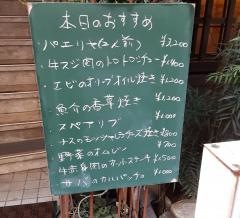 本日のおすすめ
パエリヤ(2人前) ¥3,200
牛スジ肉のトロトロシチュー ¥1,400
エビのオリーブオイル焼き ¥1,200
魚介の香草焼き ¥1,200
スペアリブ ¥1,000
ナスのモッツァレラチーズ焼き ¥800
野菜のオムレツ ¥700
牛赤身肉のカットステーキ ¥1,500
サバのカルパッチョ ¥1,000